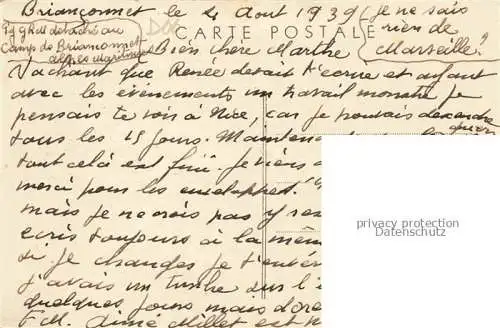 Briançonnet le 4 Aout 1939
je ne sais
rien de
Marseille?
détaché au
Camp de Briançonnet
Alpes Maritimes
CARTE POSTALE
Bien chère Marthe
Sachant que Renée devait t'ecrire et ayant
avec les évènements un travail monstre je
pensais te voir à Nice, car je pouvais descendre
tous les 15 jours. Maintenant
tout celà est fini. Je viens
merci pour les enveloppes.
mais je ne vois pas y
ecris toujours à la mêm
si je changes je t'
j'avais un sur l'
quelques jours mais
F.M. Aimé Millet est
privacy protection
AKPOOL.COM